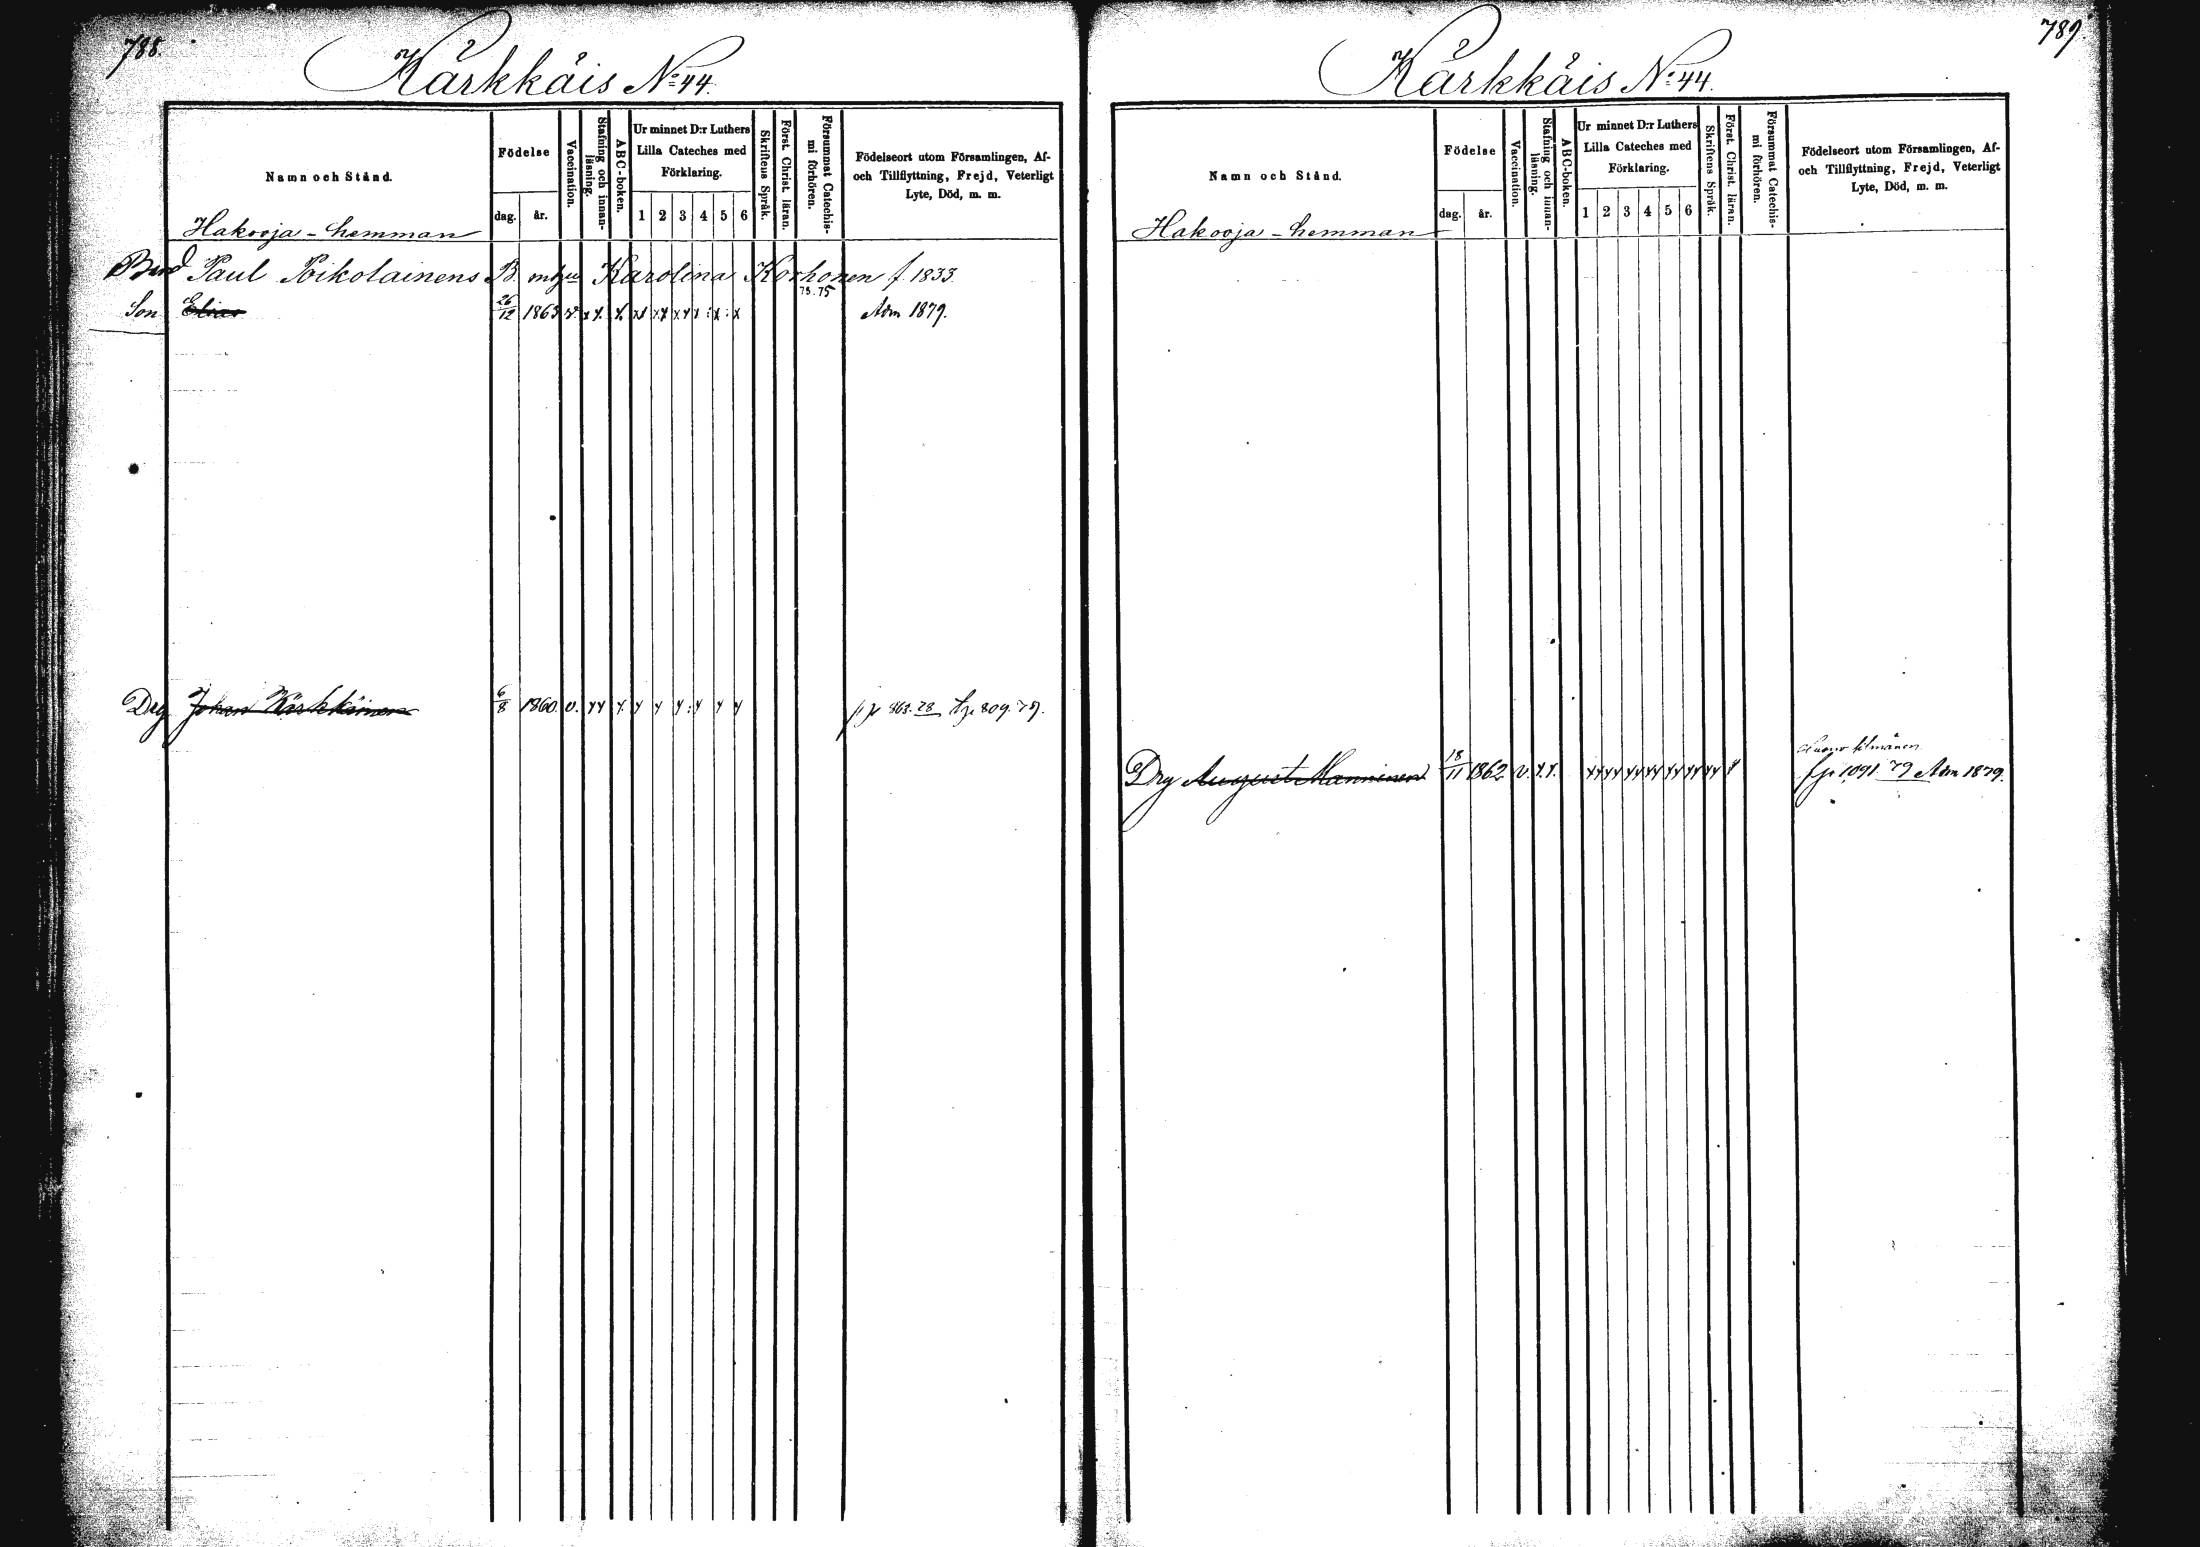 788.
Kärkkäis No 44.
Namn och Stånd.
Födelse
dag. år.
Vaccination.
Stafning och innan-
läsning.
ABC-boken.
Ur minnet D:r Luthers
Lilla Cateches med
Förklaring.
1 2 3 4 5 6
Skriftens Språk.
Först. Christ. läran.
Försummat Catechis-
mi förhören.
Födelseort utom Församlingen, Af-
och Tillflyttning, Frejd, Veterligt
Lyte, Död, m. m.
Hakooja - hemman
Paul Poikolainens B. Karolina Korhonen f. 1833.
75.75
Son Elias 26/12 1863 v. x x x Adm 1879.
Drg Johan Kärkkäinen 6/8 1860. v. 809.79.
789.
Kärkkäis No 44.
Namn och Stånd.
Födelse
dag. år.
Vaccination.
Stafning och innan-
läsning.
ABC-boken.
Ur minnet D:r Luthers
Lilla Cateches med
Förklaring.
1 2 3 4 5 6
Skriftens Språk.
Först. Christ. läran.
Försummat Catechis-
mi förhören.
Födelseort utom Församlingen, Af-
och Tillflyttning, Frejd, Veterligt
Lyte, Död, m. m.
Hakooja - hemman
Drg August Manninen 18/11 1862 v. fp 1091 79 Adm 1879.